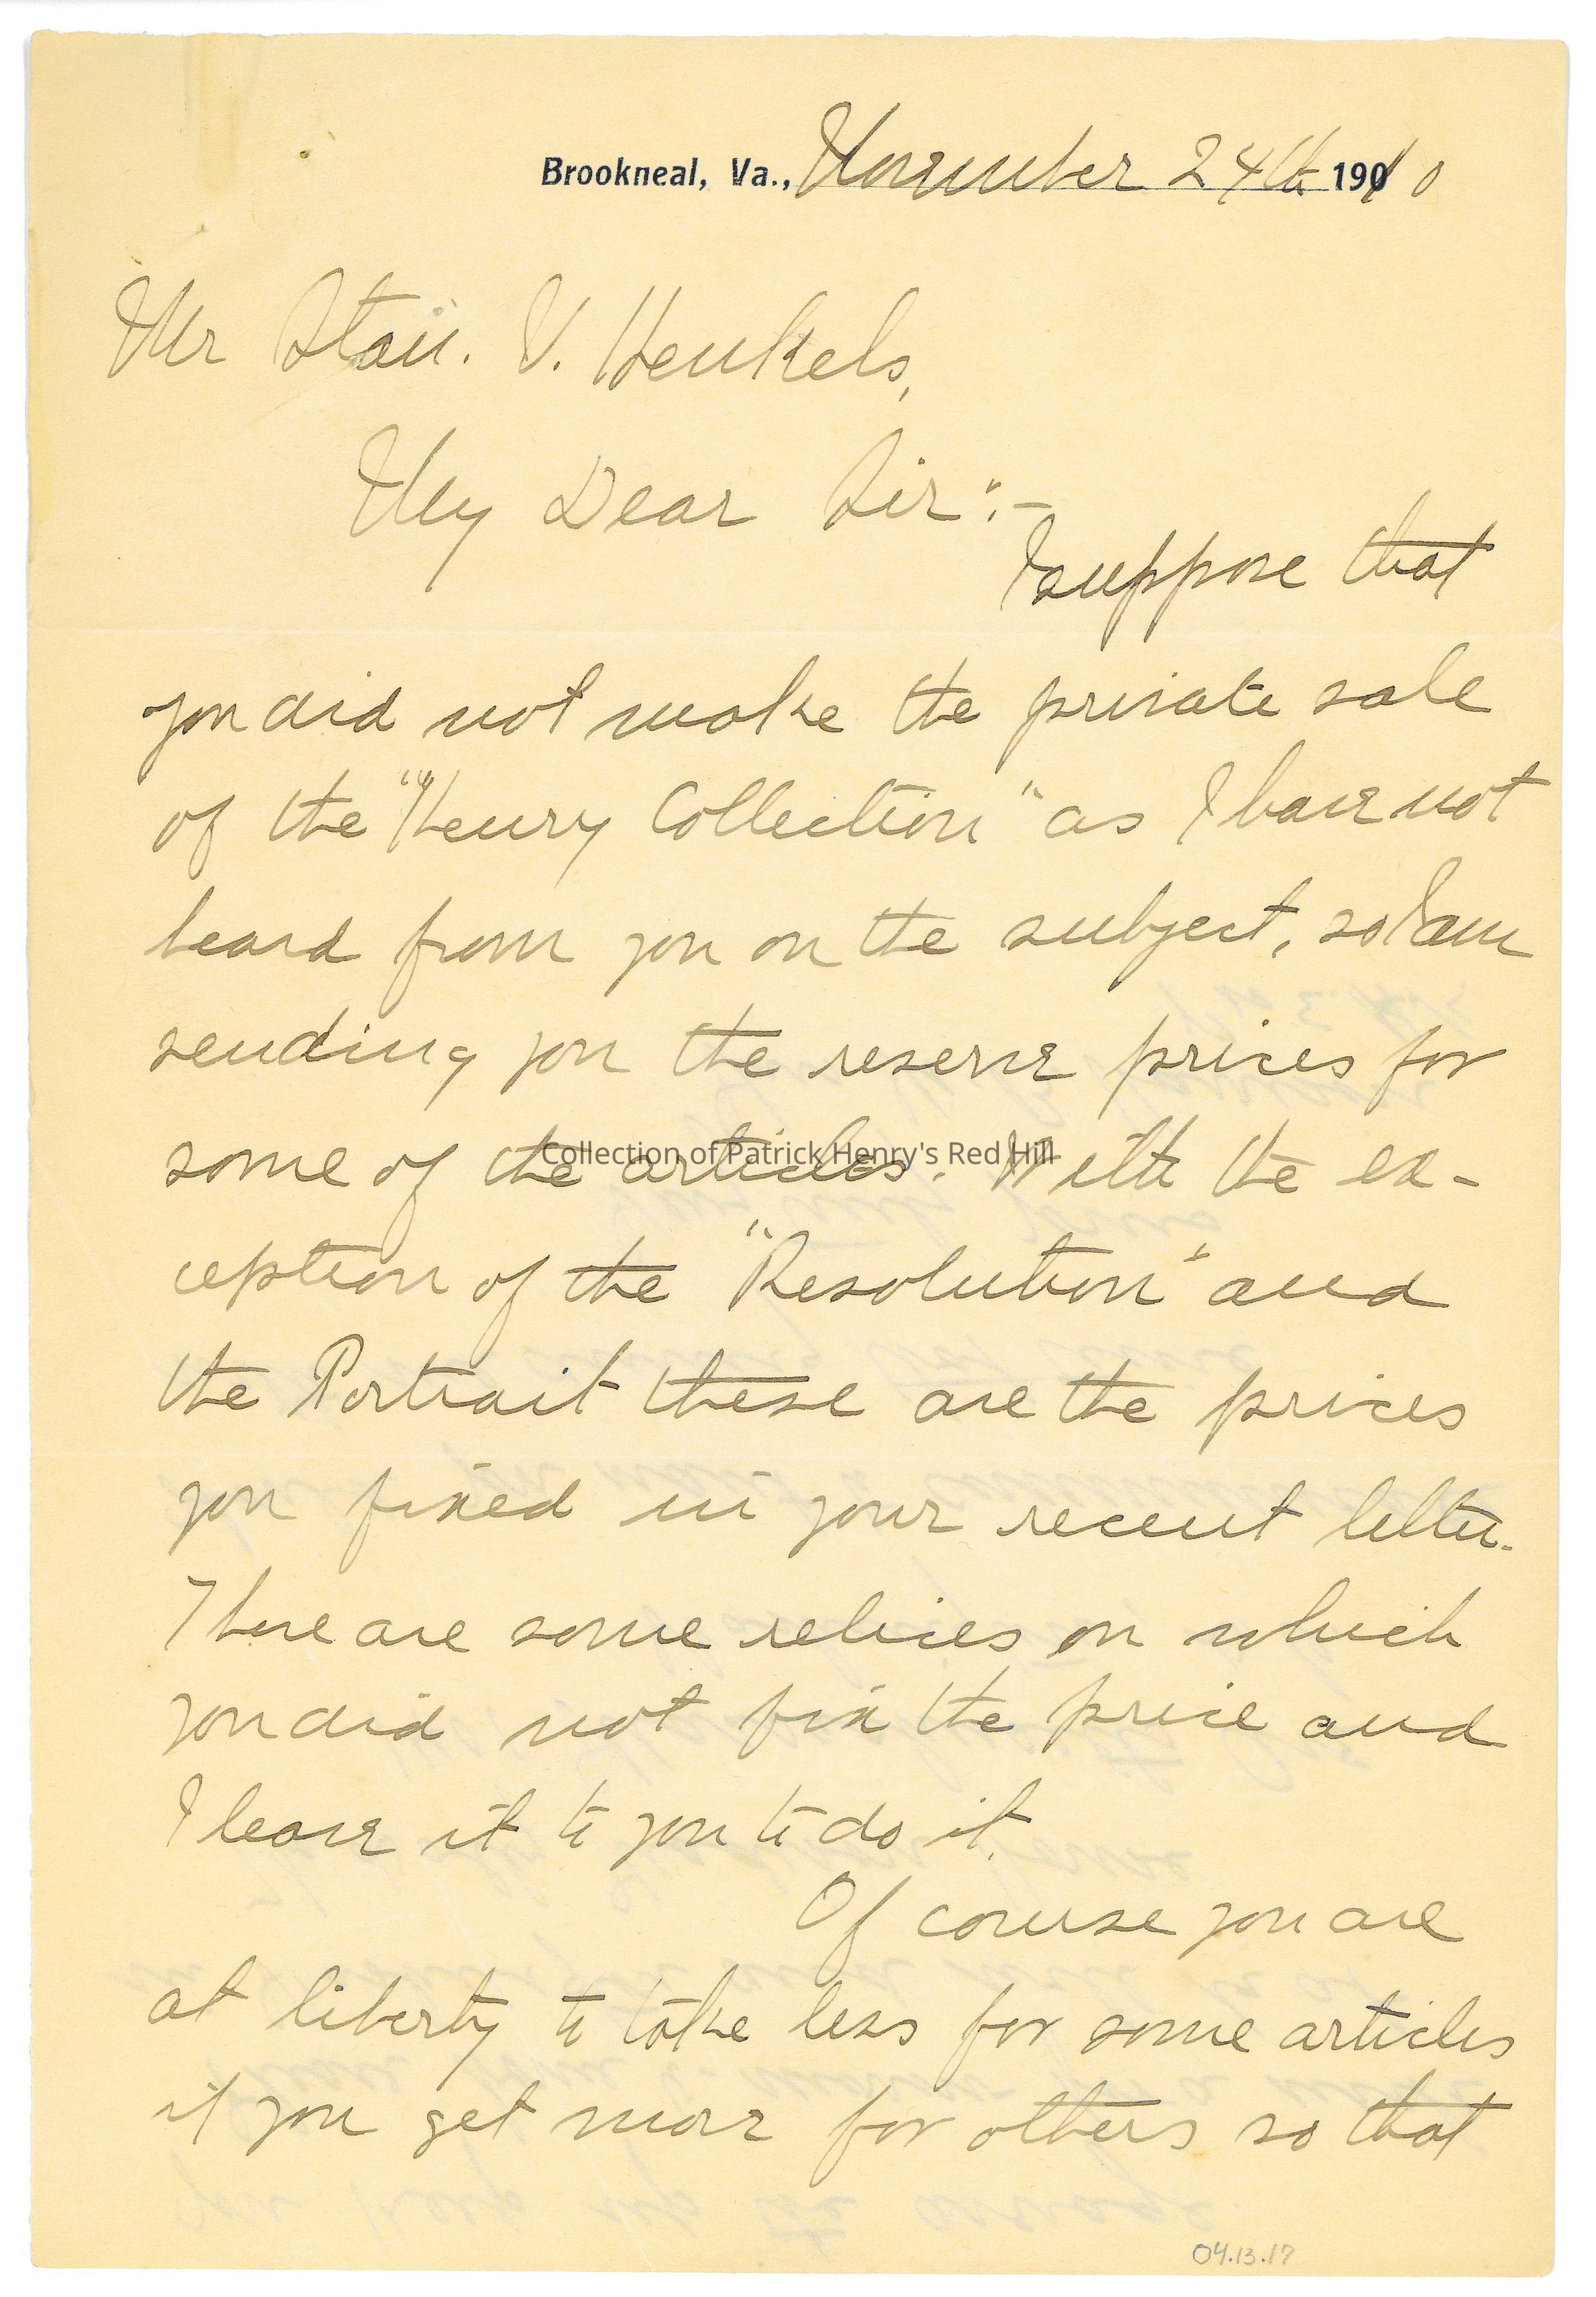 Brookneal, Va., November 24th 1910
Mr Stan. V. Henkels,
My Dear Sir:-
I suppose that
you did not make the private sale
of the "Henry Collection" as I have not
heard from you on the subject, so I am
sending you the reserve prices for
some of the articles. With the ex-
Collection of Patrick Henry's Red Hill
ception of the "Resolution" and
the Portrait these are the prices
you fixed in your recent letter.
There are some relics on which
you did not fix the price and
I leave it to you to do it.
Of course you are
at liberty to take less for some articles
if you get more for others so that
04.13.17